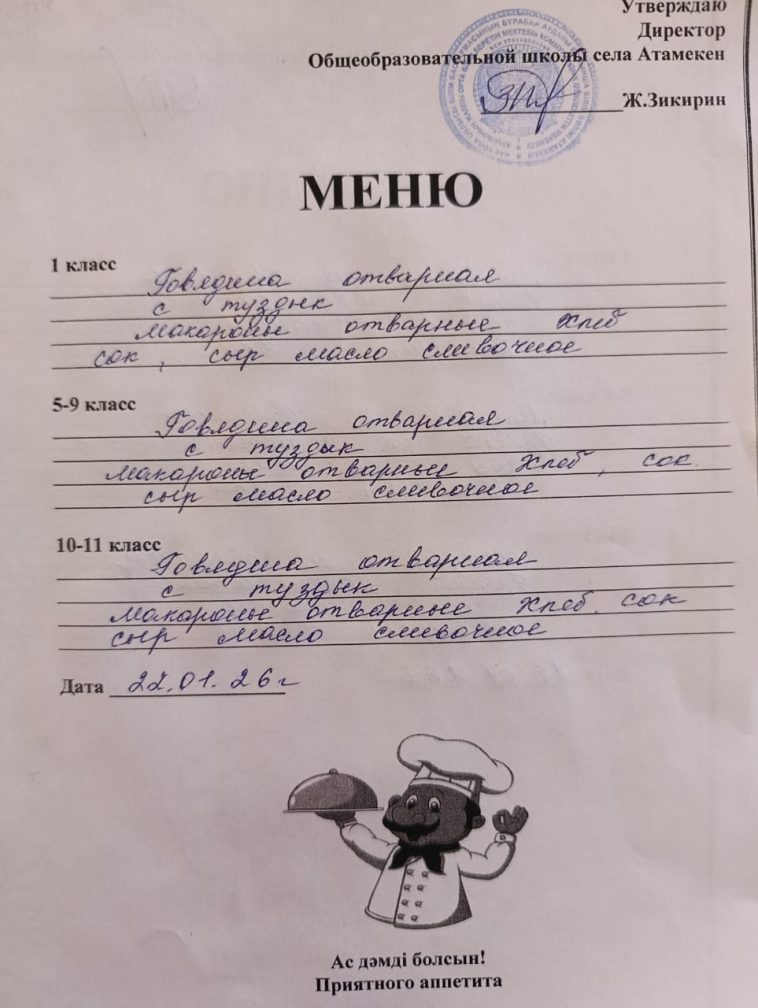 Утверждаю
Директор
Общеобразовательной школы села Атамекен
Ж.Зикирин
МЕНЮ
1 класс
Говядина отварная
с туздык
макароны отварные хлеб
сок , сыр масло сливочное
5-9 класс
Говядина отварная
с туздык
макароны отварные хлеб , сок.
сыр масло сливочное
10-11 класс
Говядина отварная
с туздык
макароны отварные хлеб. сок
сыр масло сливочное
Дата 22.01.26г
Ас дәмді болсын!
Приятного аппетита